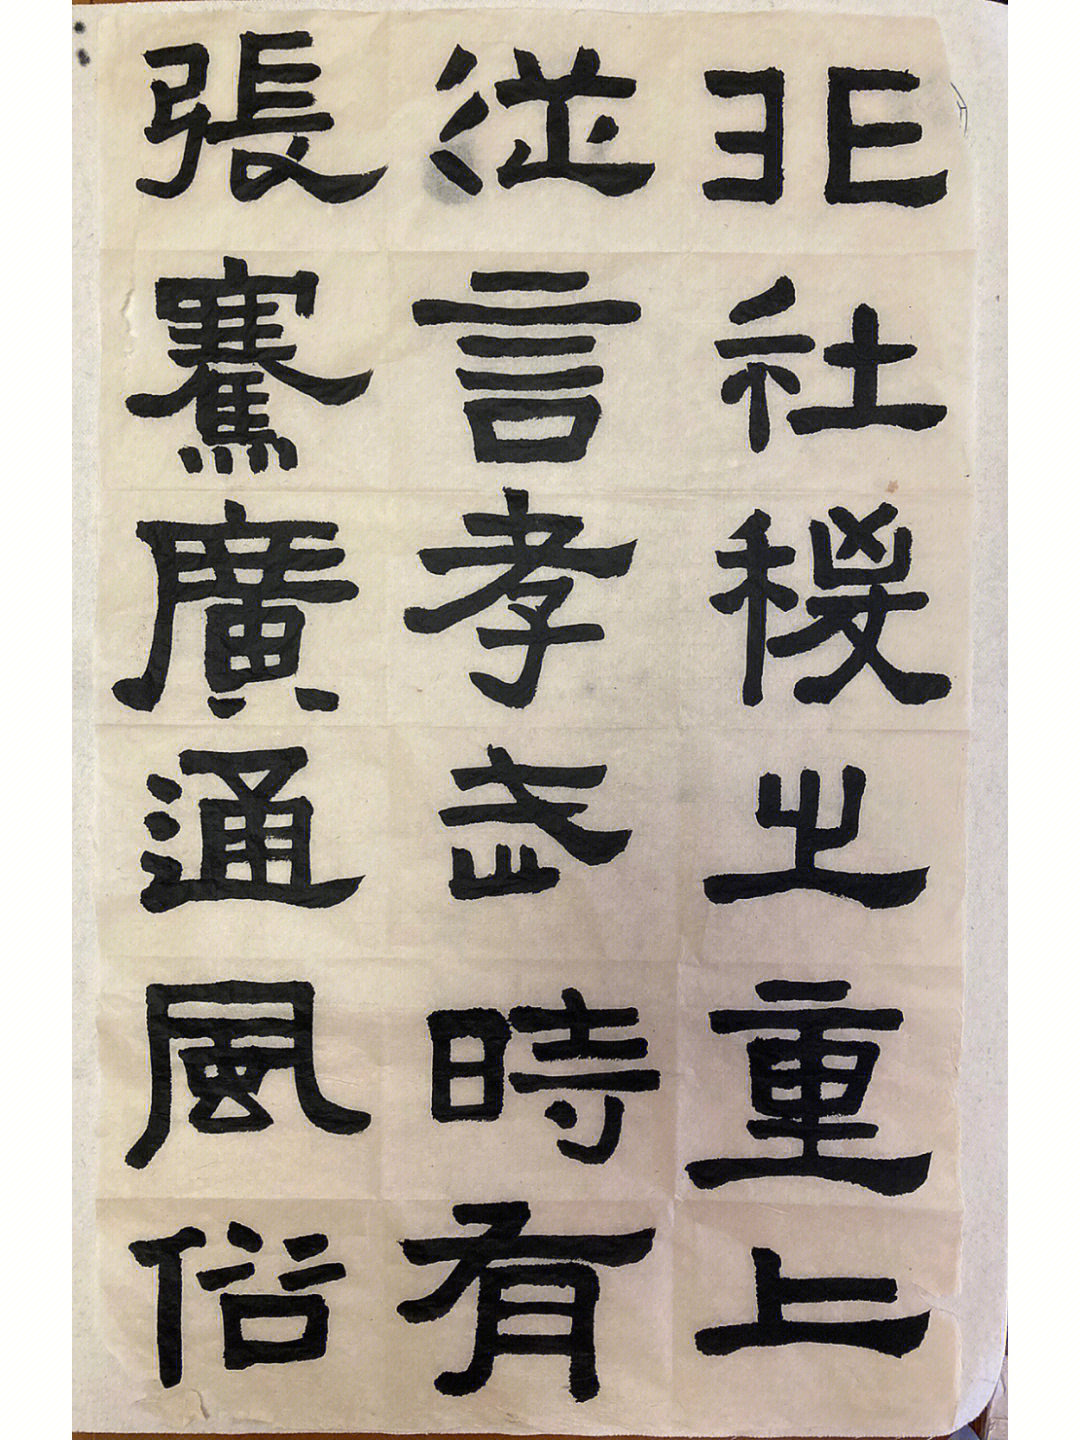 非社稷之重上
從言孝武時有
張騫廣通風俗